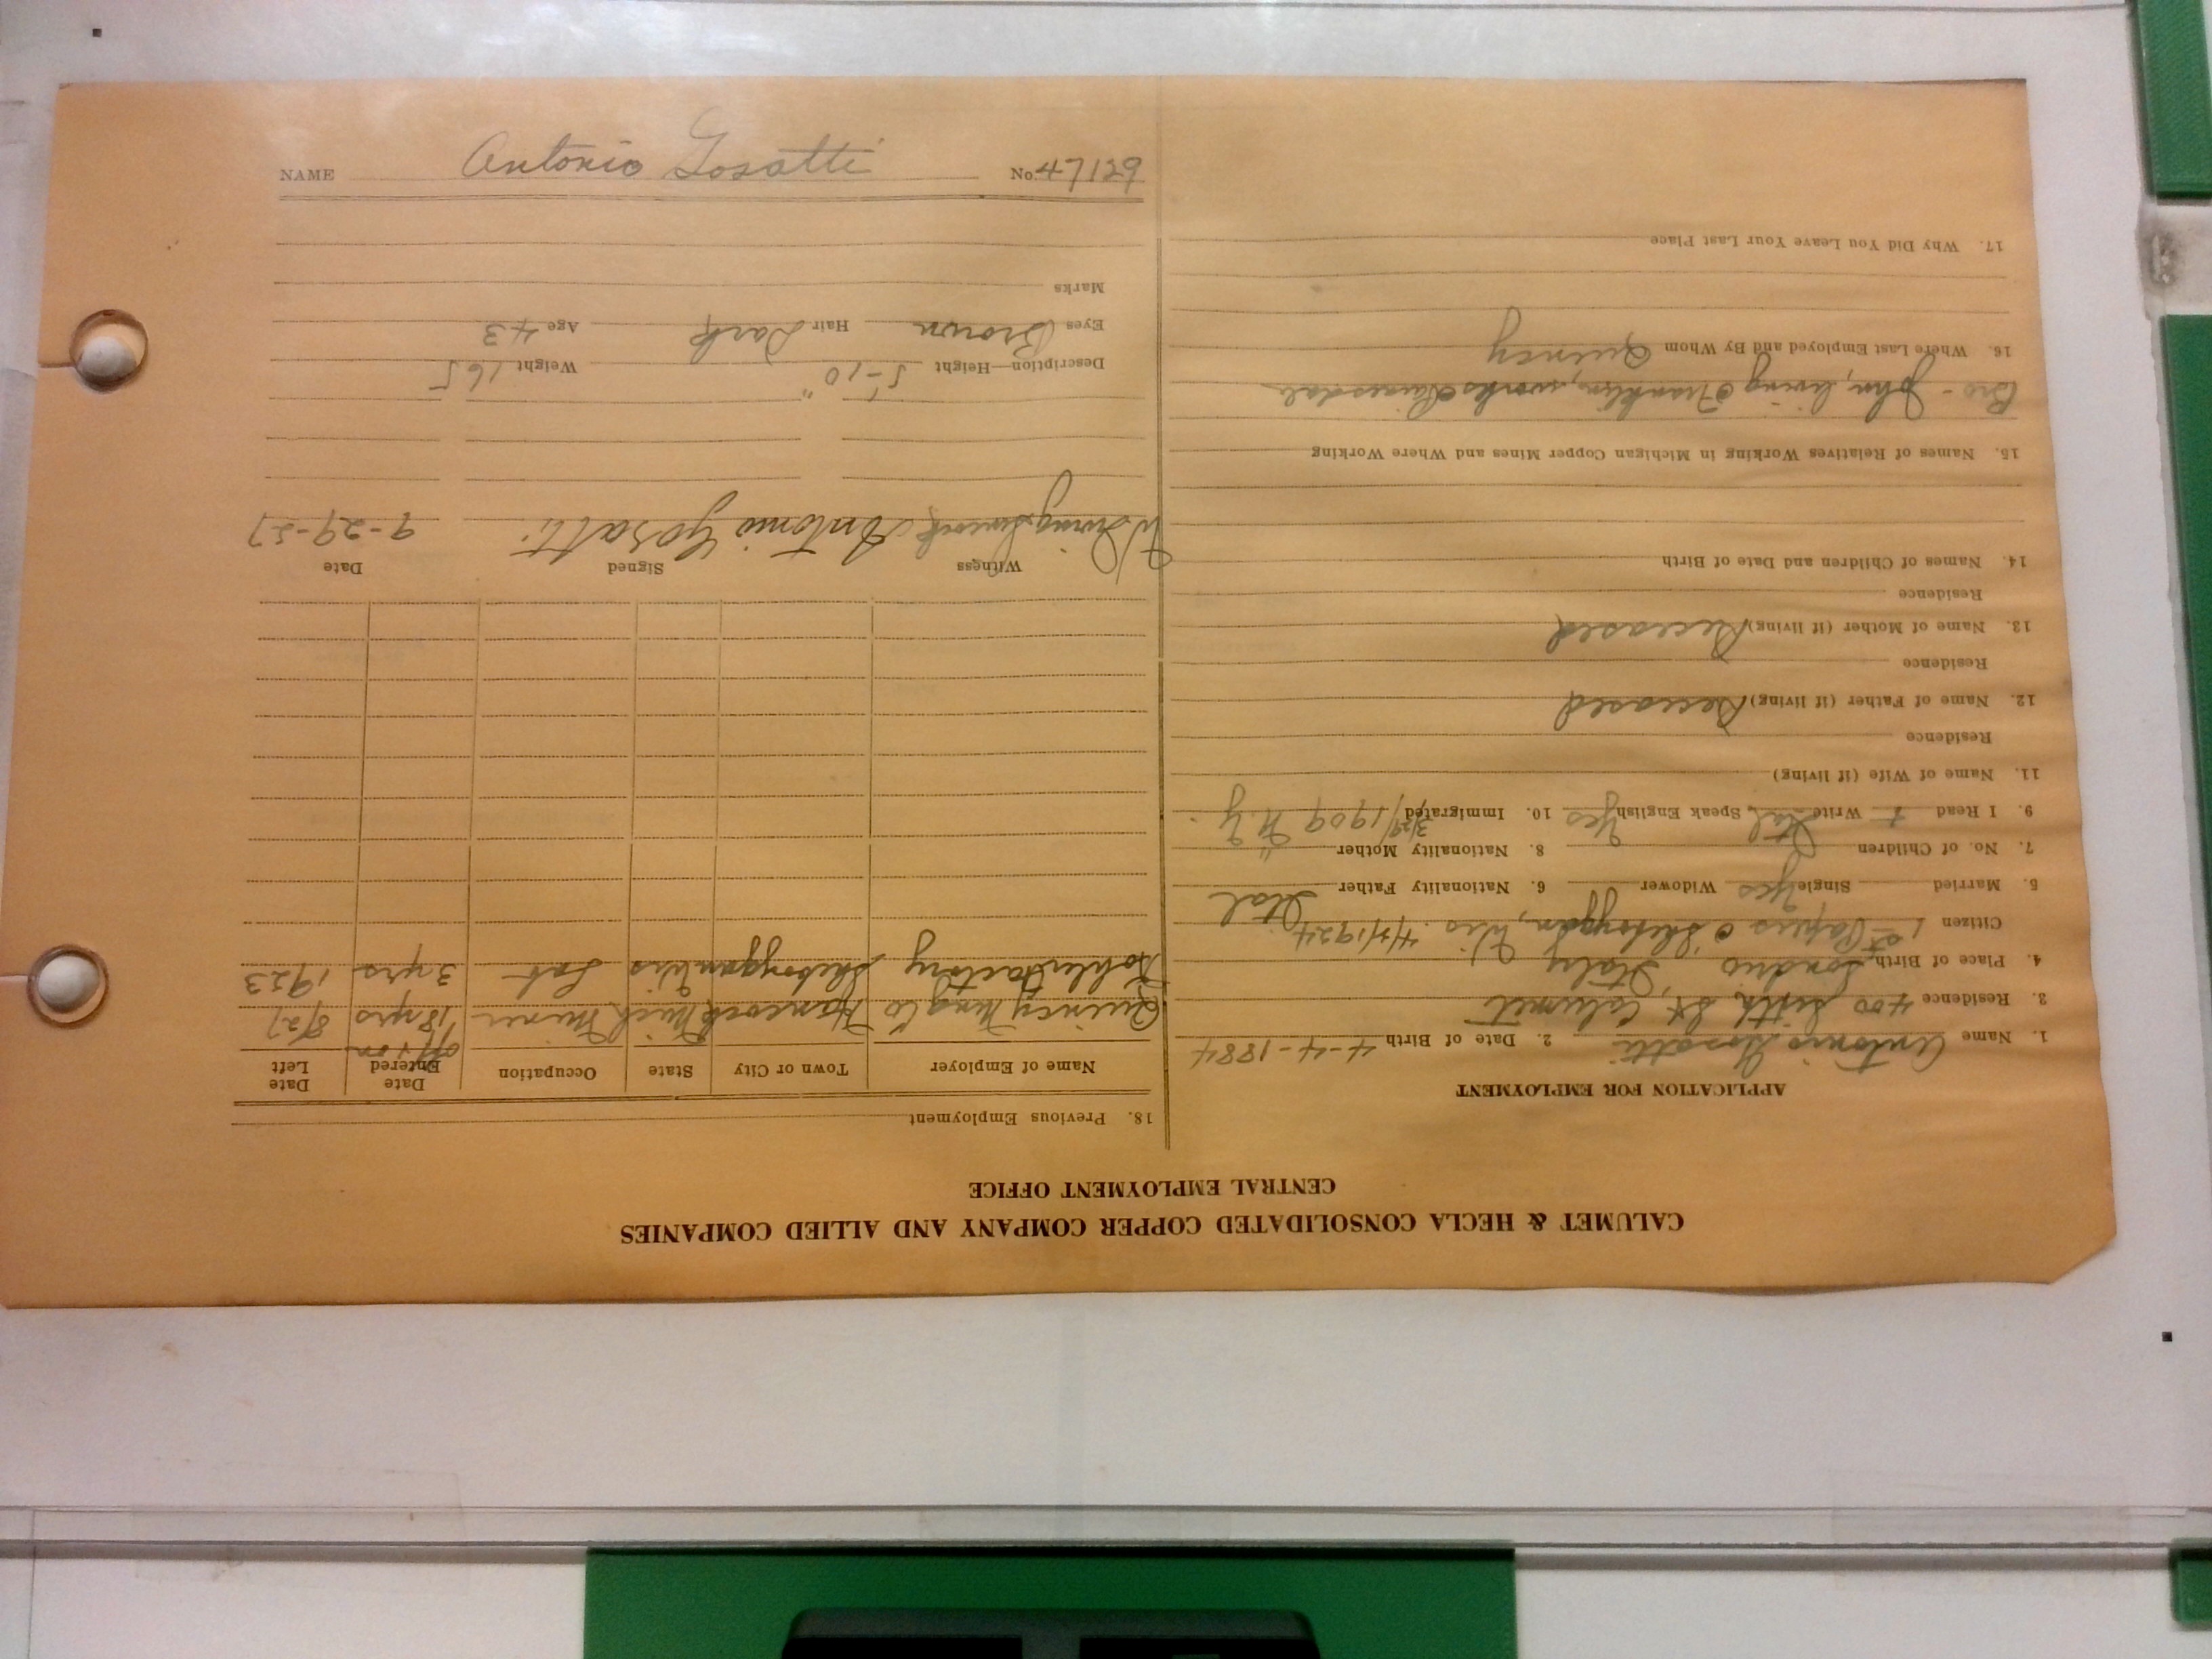 CALUMET & HECLA CONSOLIDATED COPPER COMPANY AND ALLIED COMPANIES
CENTRAL EMPLOYMENT OFFICE
APPLICATION FOR EMPLOYMENT
1. Name Antonio Gosatti 2. Date of Birth 4-4-1884
3. Residence 400 Sixth St, Calumet
4. Place of Birth Sondrio, Italy
Citizen 1st Papers Sheboygan, Wis 4/4/1924
5. Married Single Yes Widower 6. Nationality Father Ital
7. No. of Children 8. Nationality Mother "
9. I Read + Write Ital Speak English Yes 10. Immigrated 3/29/1909 N.Y.
11. Name of Wife (if living)
Residence
12. Name of Father (if living) Deceased
Residence
13. Name of Mother (if living) Deceased
Residence
14. Names of Children and Date of Birth
15. Names of Relatives Working in Michigan Copper Mines and Where Working
Bro - John, living Franklin, works
16. Where Last Employed and By Whom Quincy
17. Why Did You Leave Your Last Place
18. Previous Employment
Name of Employer Town or City State Occupation Date Entered Date Left
off + on
Quincy Mng Co Hancock Mich Miner 18 yrs 8/27
Kohler Factory Sheboygan Wis Lab 3 yrs 1923
Witness Signed Date
Antonio Gosatti 9-29-27
Description—Height 5'-10" Weight 165
Eyes Brown Hair Dark Age 43
Marks
NAME Antonio Gosatti No. 47129